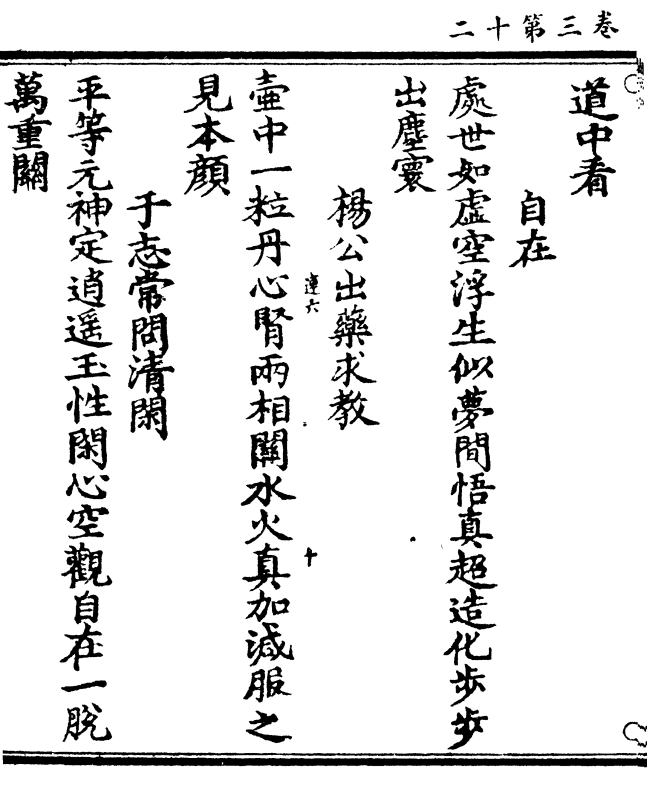 卷三第十二
道中看
自在
處世如虛空浮生似夢間悟真超造化步步
出塵寰
楊公出藥求教
壺中一粒丹心腎兩相關水火真加減服之
見本顏
連六
十
于志常問清閑
平等元神定逍遥玉性閑心空觀自在一脫
萬重關